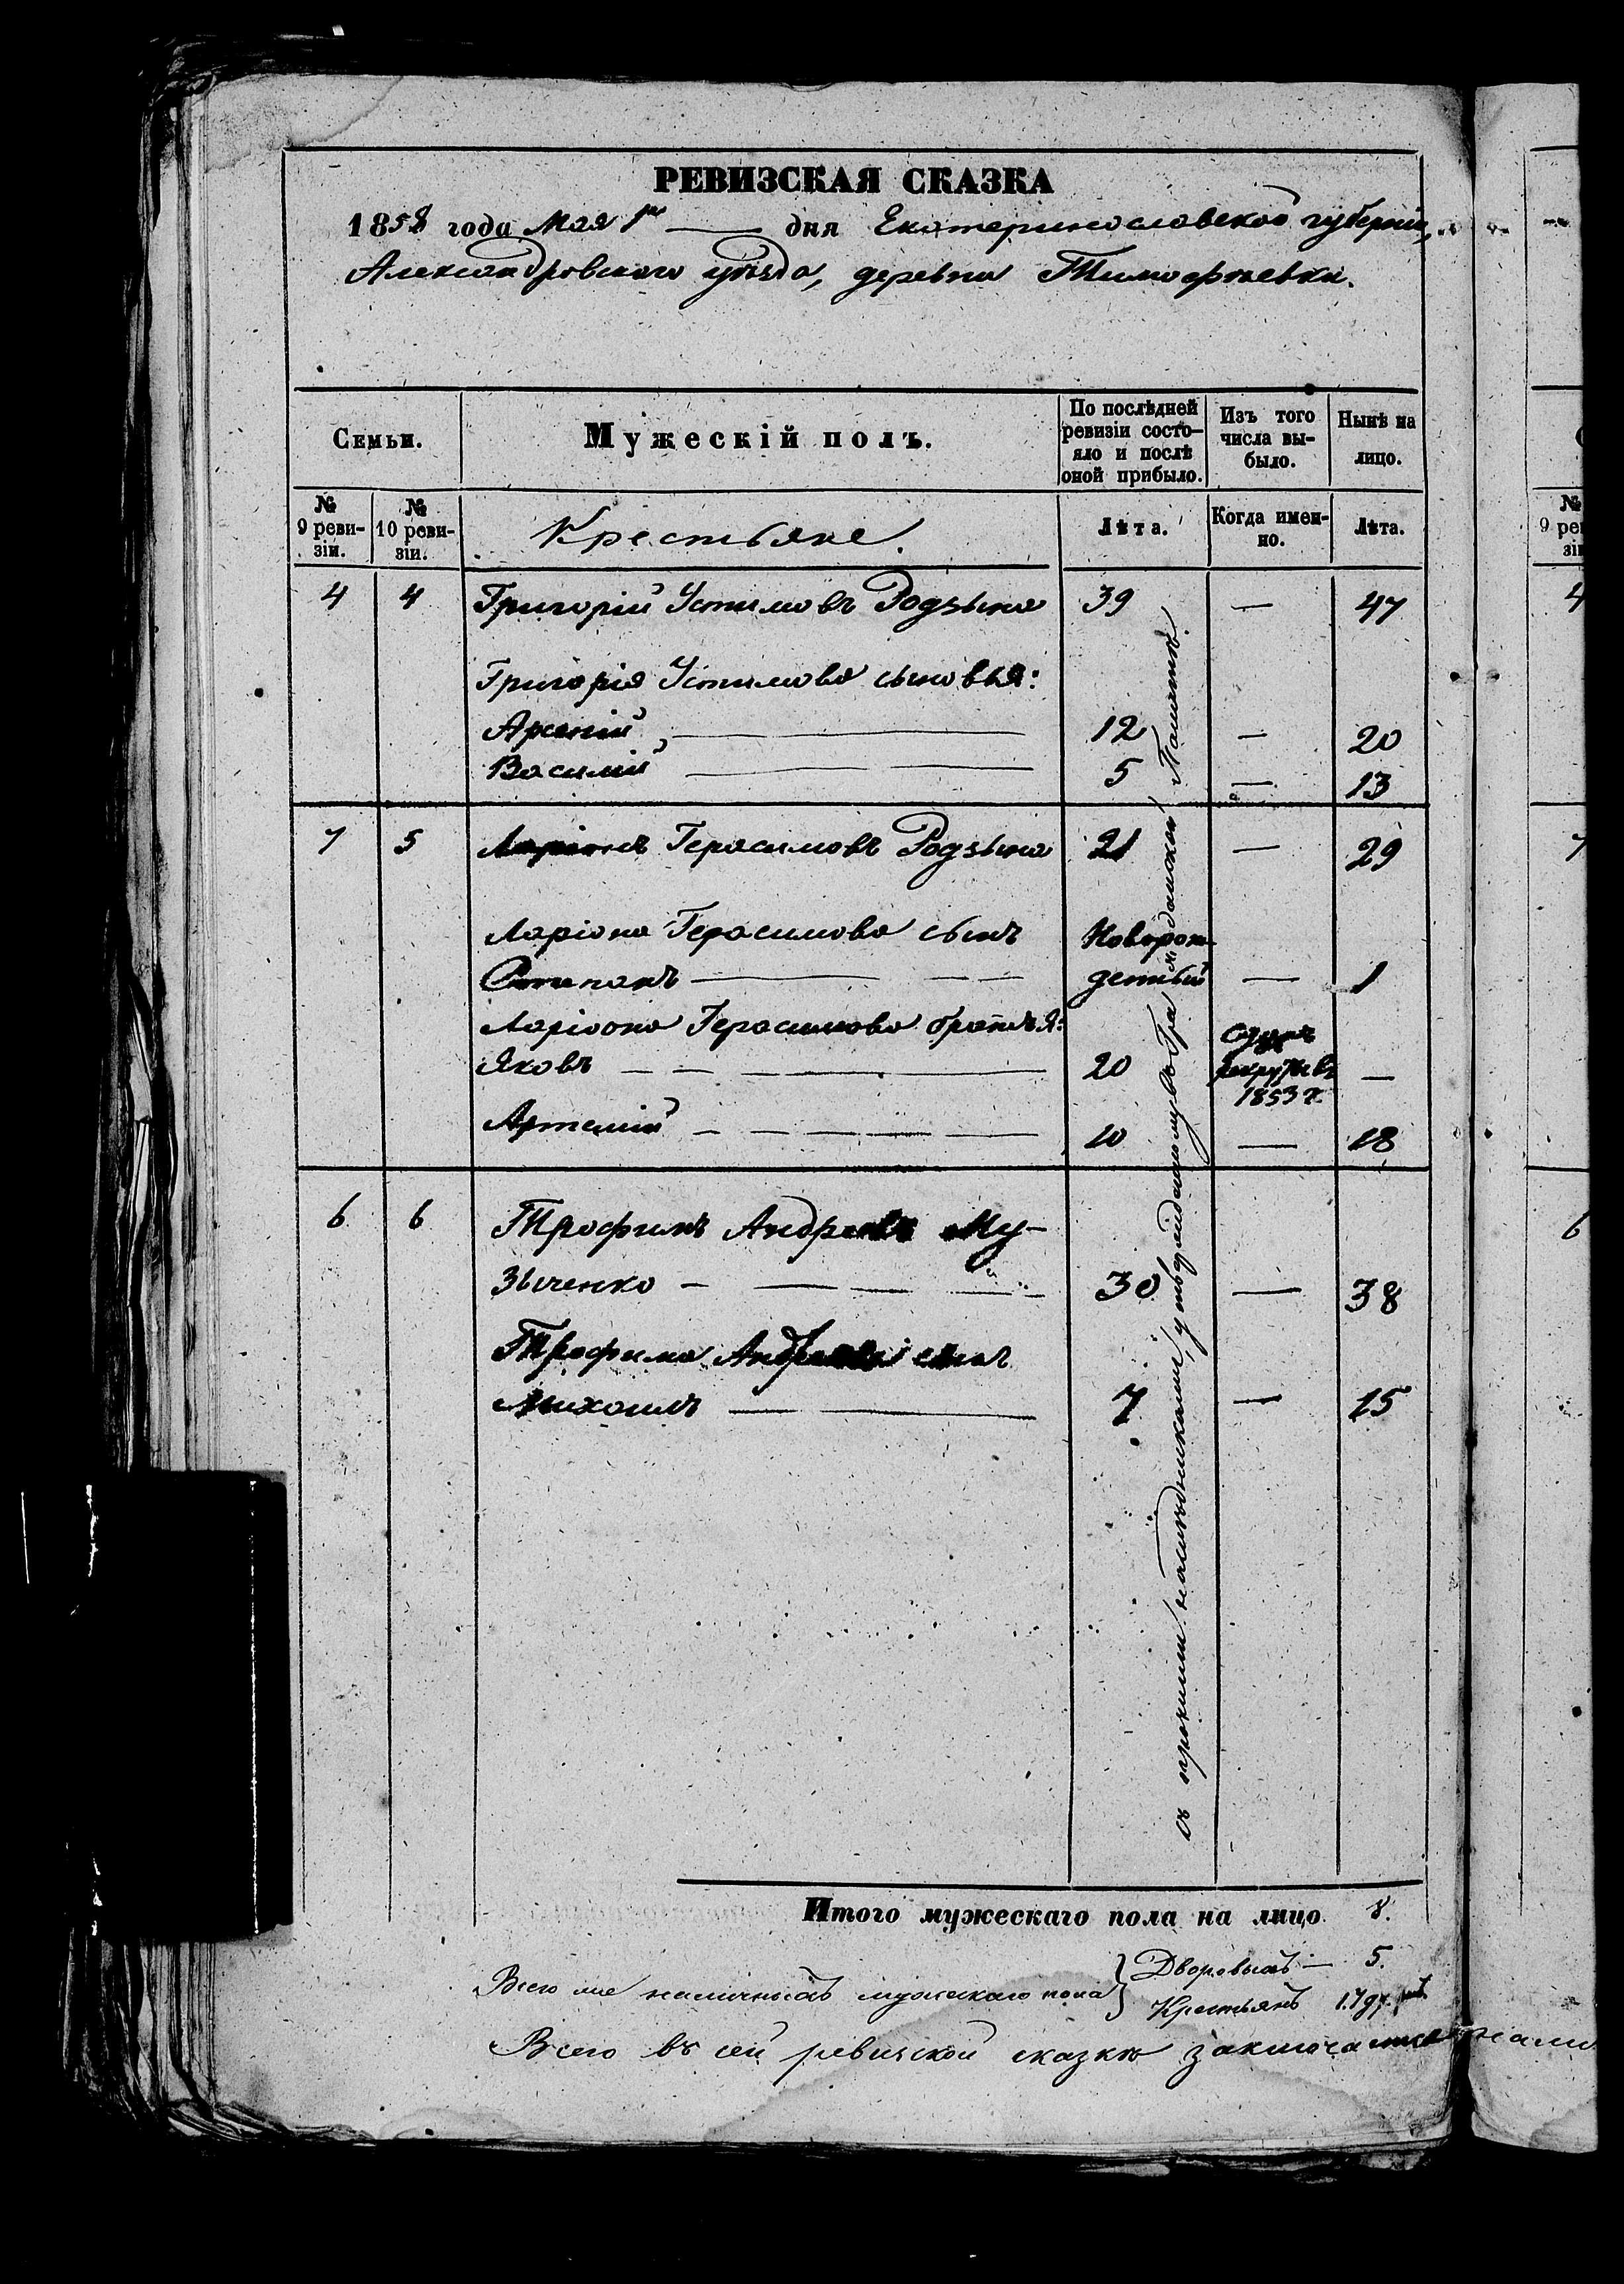 РЕВИЗСКАЯ СКАЗКА
1858 года Мая 1го — дня Екатеринославской губерніи,
Александровского уѣзда, деревни Тимофѣевки.
Семьи.
Мужескій полъ.
По послѣдней ревизіи состо-
яло и послѣ
оной прибыло.
Изъ того
числа вы-
было.
Нынѣ на
лицо.
№
9 реви-
зіи.
№
10 реви-
зіи.
Крестьяне.
Лѣта.
Когда имен-
но.
Лѣта.
4 4 Григорій Устимовъ Родзына 39 — 47
Григорія Устимова сыновья:
Арсеній — 12 — 20
Василій — 5 — 13
7 5 Ларіонъ Герасимовъ Родзына 21 — 29
Ларіона Герасимова сынъ Новорож-
Степанъ — денный — 1
Ларіона Герасимова братья:
Яковъ — 20 рекруты въ 1853 г. —
Артемій — 10 — 18
6 6 Трофимъ Андреевъ Му-
зыченко — 30 — 38
Трофима Андреева сынъ
Михаилъ — 7 — 15
Итого мужескаго пола на лицо 8.
Всего же наличныхъ мужескаго пола } Дворовыхъ — 5.
Крестьянъ 17
Всего въ сей ревизской сказкѣ